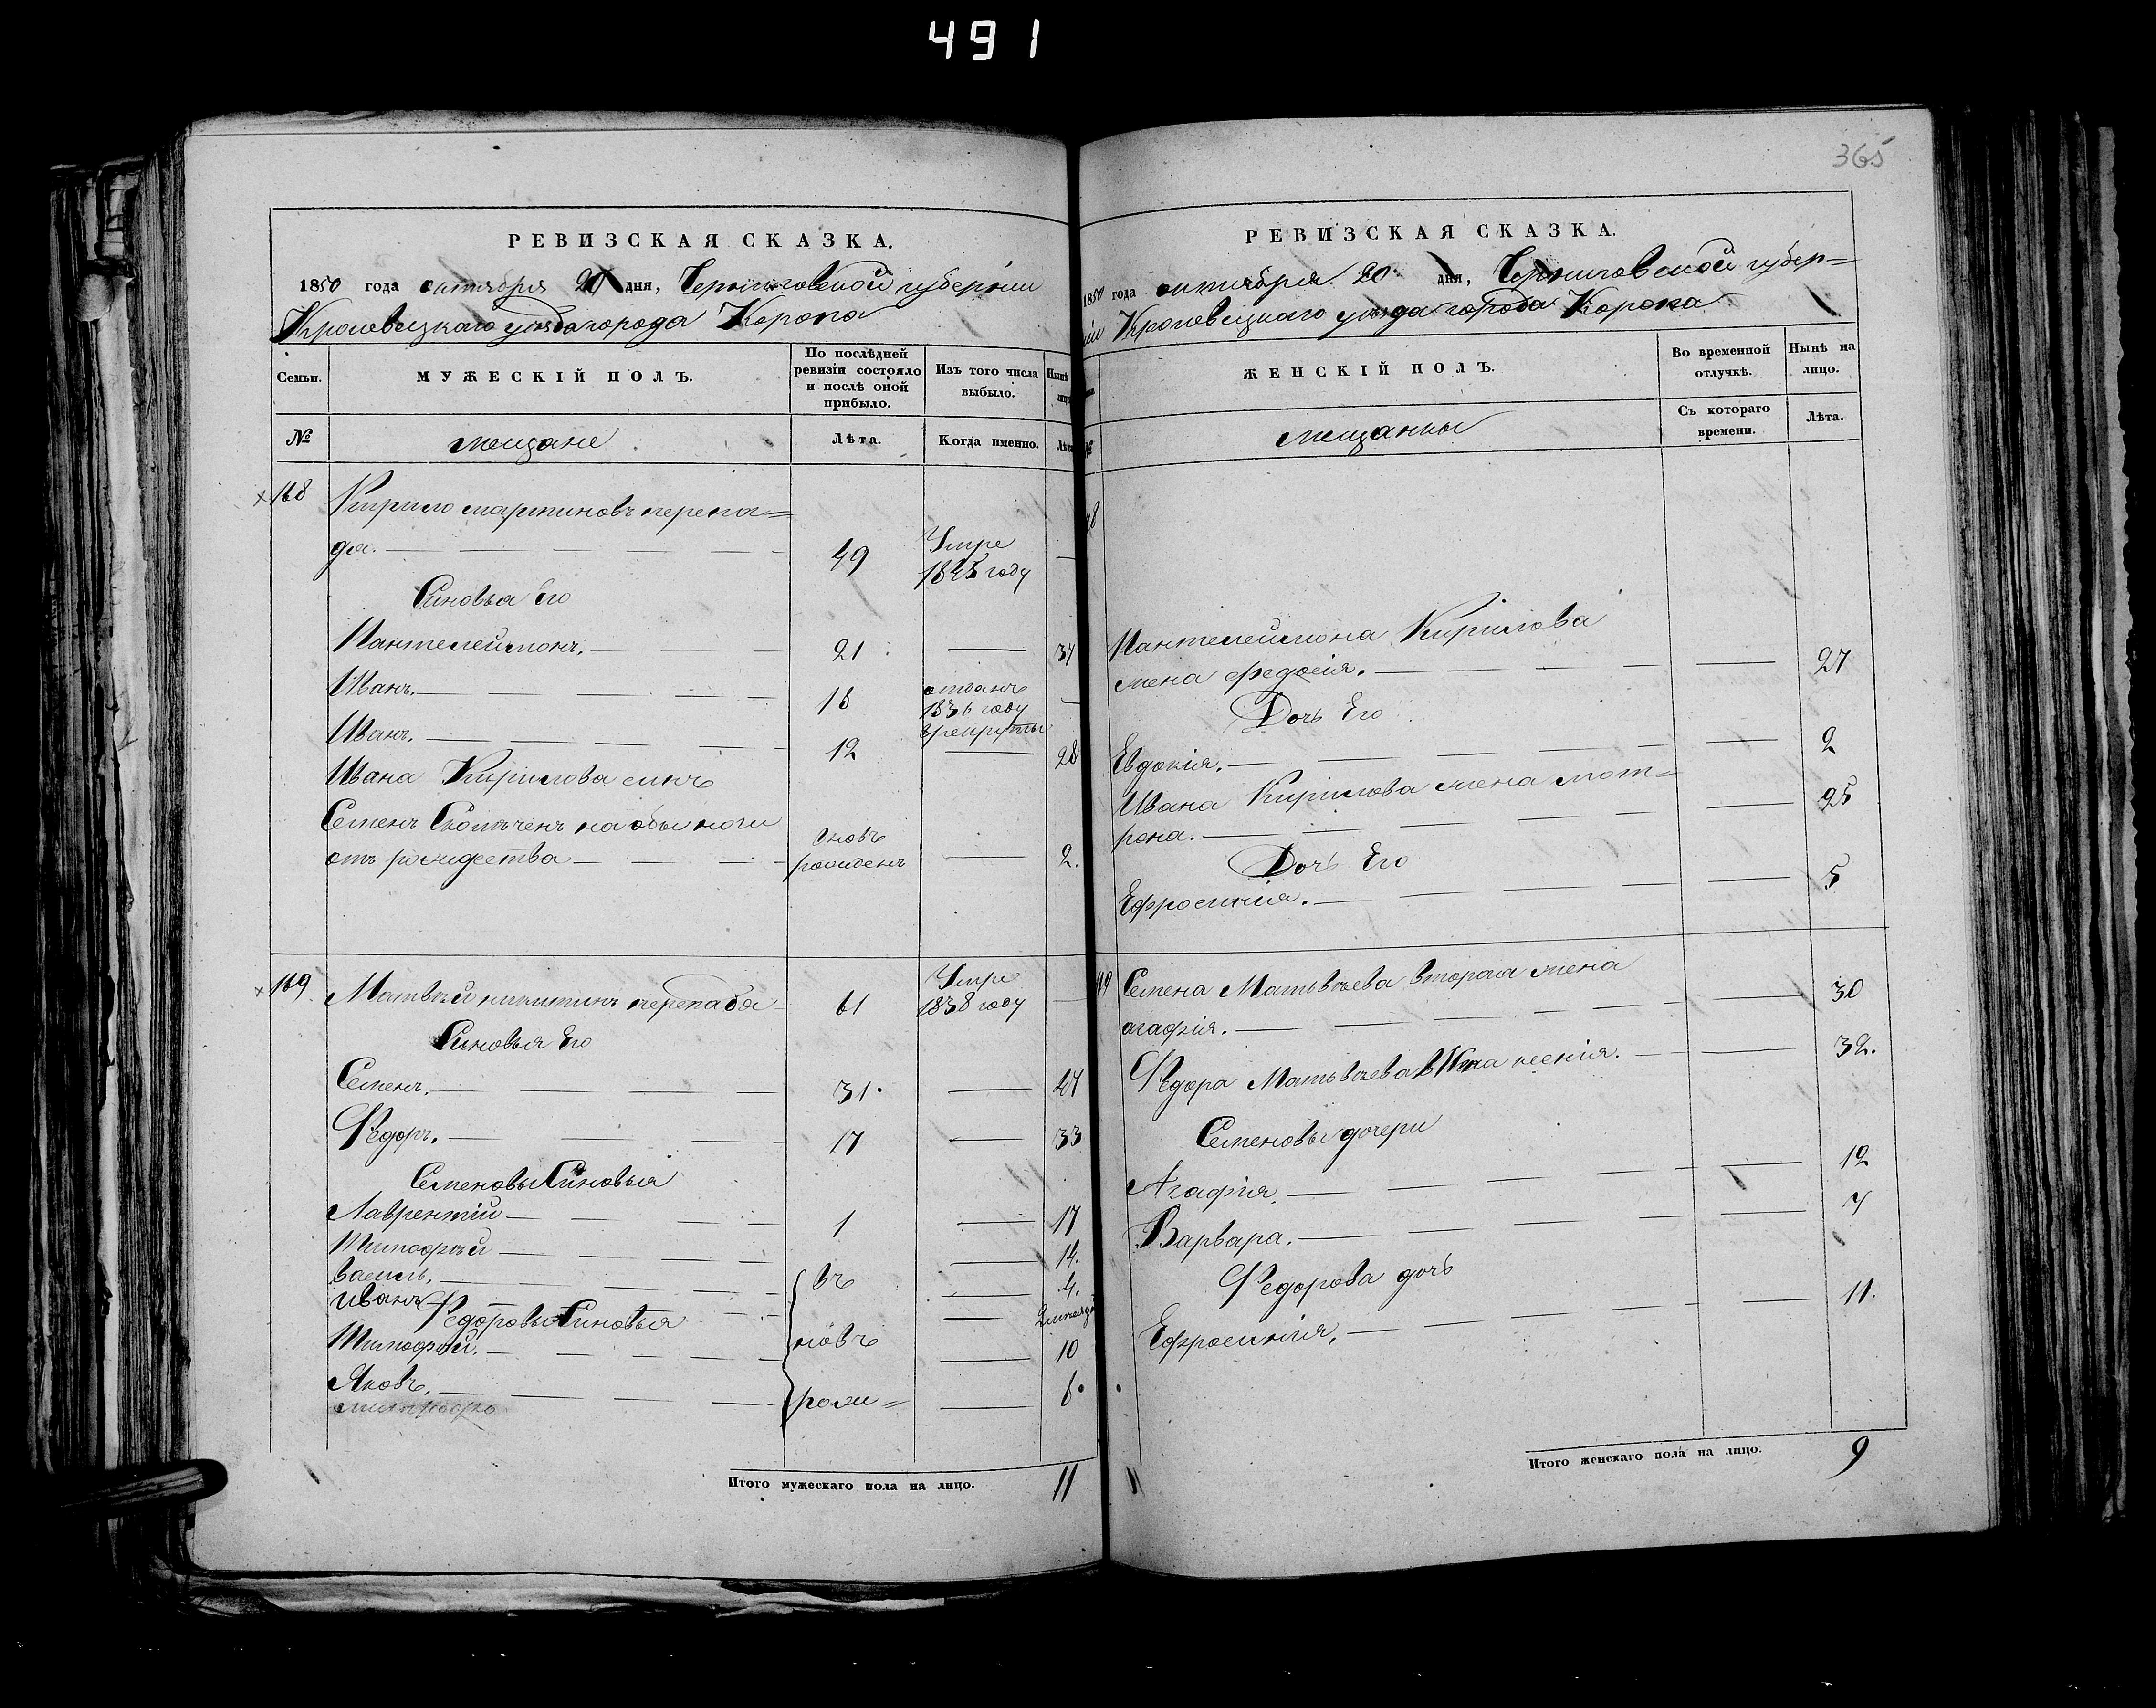 491
365
РЕВИЗСКАЯ СКАЗКА.
1850 года октября 20 дня, Черниговской губернии
Кролевецкаго уезда города Коропа
Семьи.
МУЖЕСКІЙ ПОЛЪ.
По послѣдней ревизіи состояло и послѣ оной прибыло.
Изъ того числа выбыло.
Нынѣ лицо
№
мещане
Лѣта.
Когда именно.
Лѣта
168
Кирило мартиновъ черепа=
да.
49
Умре
1845 году
Синовья Его
Пантелеймонъ.
21
37
Иванъ.
18
отданъ
1836 году
врекруты
Иванъ.
12
28
Ивана Кирилова синъ
Семенъ Скалѣченъ на обы ноги
отъ рождества
вновь
рожденъ
2.
169
Матвѣй никитинъ черепада
61
Умре
1838 году
Синовья Его
Семенъ.
31.
47
Федоръ.
17
33
Семеновы Синовья
Лаврентій
1
17
Тимофѣй
14.
василь.
въ
4.
Иванъ
2 месяца
Федоровы Синовья
Тимофѣй.
новъ
10
Яковъ.
рожд=
6.
Итого мужескаго пола на лицо.
11
РЕВИЗСКАЯ СКАЗКА.
1850 года октября 20 дня, Черниговской губер=
ніи Кролевецкаго уезда города Коропа
ЖЕНСКІЙ ПОЛЪ.
Во временной отлучкѣ.
Нынѣ на лицо.
№
мещанки
Съ котораго времени.
Лѣта.
Пантелеймона Кирилова
жена федосія.
27
Дочь Его
Евдокія.
2
Ивана Кирилова жена мот=
рона.
25
Дочь Его
Ефросинія.
5
Семена Матьвѣева вторая жена
агафія.
30
Федора Матьвѣева жена ксенія.
32.
Семеновы дочери
Агафія
12
Варвара.
7
Федорова дочь
Ефросинія.
11.
Итого женскаго пола на лицо.
9